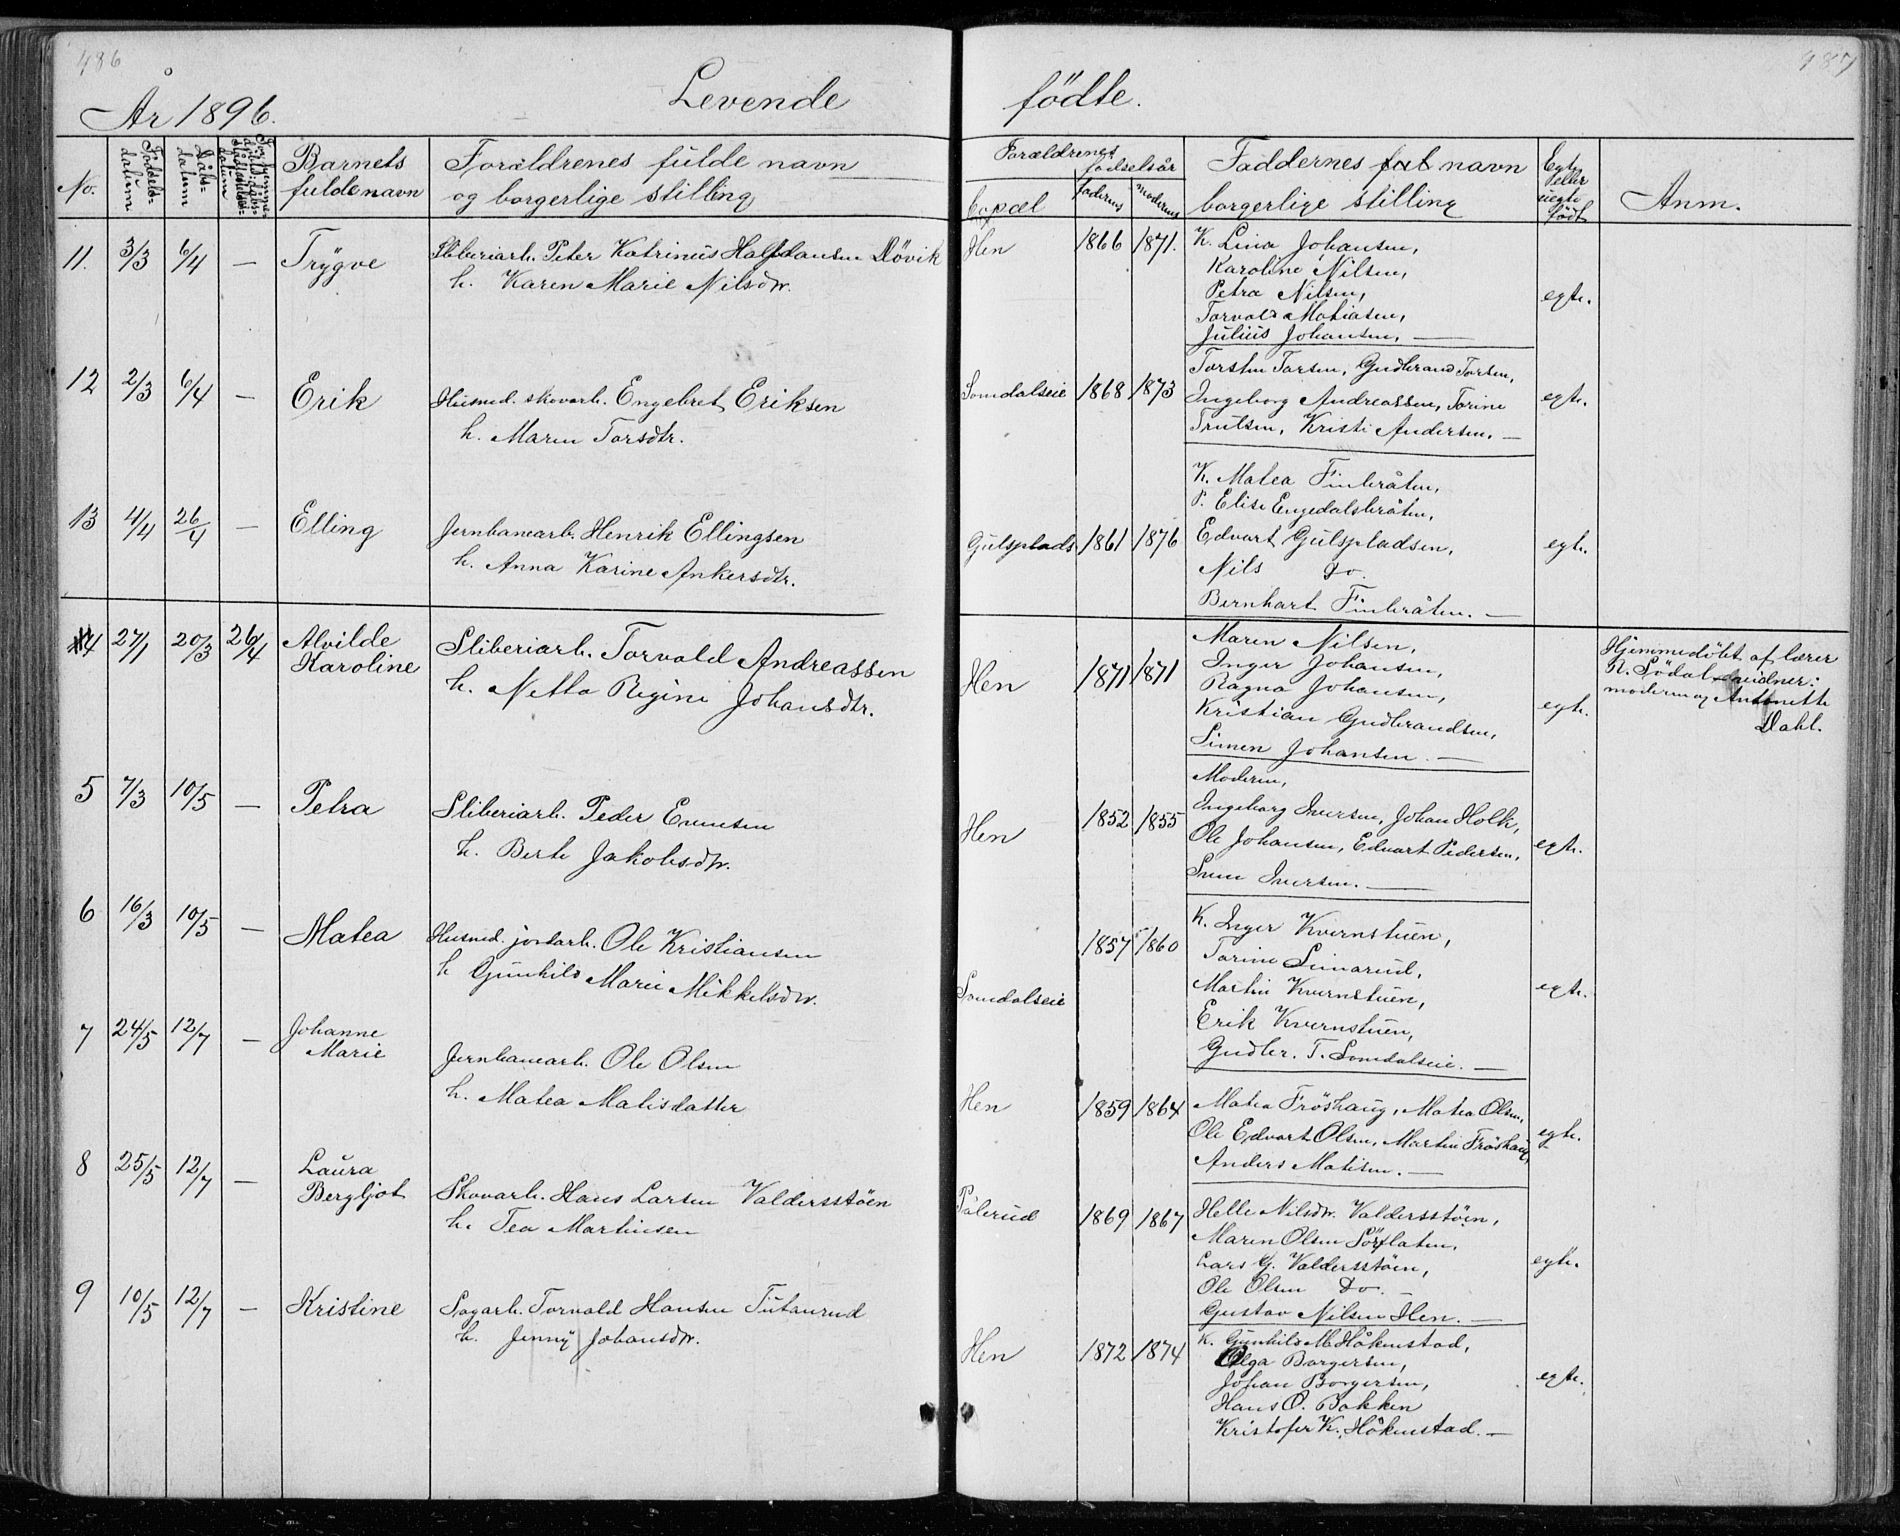 486
År 1896.
Levende
No.
Födsels-
datum
Dåbs-
datum
Barnets
fulde navn
Forældrenes fulde navn
og borgerlige stilling
11. 3/3 6/4 — Trygve Sliberiarb. Peter Katrinus Halfdansen Dövik
h. Karen Marie Nilsdtr.
12 2/3 6/4 — Erik Husmd. skovarb. Engebret Eriksen
h. Maren Torsdtr.
13 4/4 26/4 — Elling Jernbanearb. Henrik Ellingsen
h. Anna Karine Ankersdtr.
4 27/1 20/3 26/4 Alvilde
Karoline
Sliberiarb. Torvald Andreassen
h. Netta Regine Johansdtr.
5 7/3 10/5 — Petra Sliberiarb. Peder Evensen
h. Berte Jakobsdtr.
6 16/3 10/5 — Matea Husmd. jordarb. Ole Kristiansen
h Gunhild Marie Mikkelsdtr.
7 24/5 12/7 — Johanne
Marie
Jernbanearb. Ole Olsen
h. Matea Matisdatter
8 25/5 12/7 — Laura
Bergljot
Skovarb. Hans Larsen Valdersstöen
h. Tea Martinsen
9 10/5 12/7 — Kristine Sagarb. Torvald Hansen Tutanrud
h. Jenny Johansdtr.
487
födte.
Forældrenes
födselsår
Bopæl
faderens
moderens
Faddernes ful navn
borgerlige stilling
Egte
eller
uegte
født
Anm.
Hen 1866 1871. K. Lina Johansen,
Karoline Nilsen,
Petra Nilsen,
egte.
Torvald Matiasen,
Julius Johansen. —
Torsten Torsen, Gudbrand Torsen,
Somdalseie 1868 1873 Ingeborg Andreassen, Torine egte.
Trulsen, Kristi Andersen. —
K. Matea Finbråten,
P. Elise Engedalsbråten,
Gulsplads 1861 1876 Edvart Gulspladsen, egte.
Nils Do.
Bernhart Finbråten. —
Maren Nilsen,
Inger Johansen,
Hen 1871 1871 Ragna Johansen, egte.
Kristian Gudbrandsen,
Simen Johansen. —
Hjemmedöbt af lærer
N. Södal vidner:
moderen og Antonette
Dahl.
Moderen,
Hen 1852 1855 Ingeborg Iversen, Johan Holk,
Ole Johansen, Edvart Pedersen, egte.
Iversen. —
K. Inger Kvernstuen,
1857 1860 Torine Simarud,
Somdalseie Martin Kvernstuen, egte.
Erik Kvernstuen,
Gudbr. T. Somdalseie. —
Hen 1859 1864 Matea Fröshaug, Matea Olsen,
Ole Edvart Olsen, Martin Fröshaug, egte.
Anders Matisen. —
Pålerud 1869 1867 Helle Nilsdtr. Valdersstöen,
Maren Olsen Sörflaten,
Lars G. Valdersstöen, egte.
Ole Olsen Do. —
Gustav Nilsen Hen. —
Hen 1872 1874 K. Gunhild M. Håkenstad,
Olga Borgersen,
Johan Borgersen, egte.
Hans O. Bakken
Kristofer K. Håkenstad. —